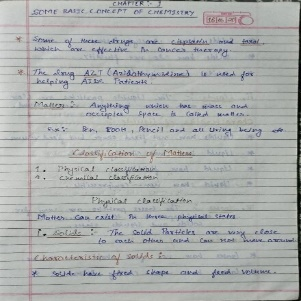 CHAPTER : 1
SOME BASIC CONCEPT OF CHEMISTRY
* Some of these drugs are cisplatin and taxol,
which are effective in cancer therapy
* The drug AZT (Azidothymidine) is used for
helping AIDS Patients.
Matter :- Anything which has mass and
occupies space is called matter.
Pen, Book, Pencil and all living being
Classification of Matter
1. Physical classification
2. Chemical classification
Physical classification
Matter can exist in three physical states
1. Solids :- The Solid Particles are very close
to each other and can not move around
Characteristics of Solids :-
* Solids have fixed shape and fixed volume.